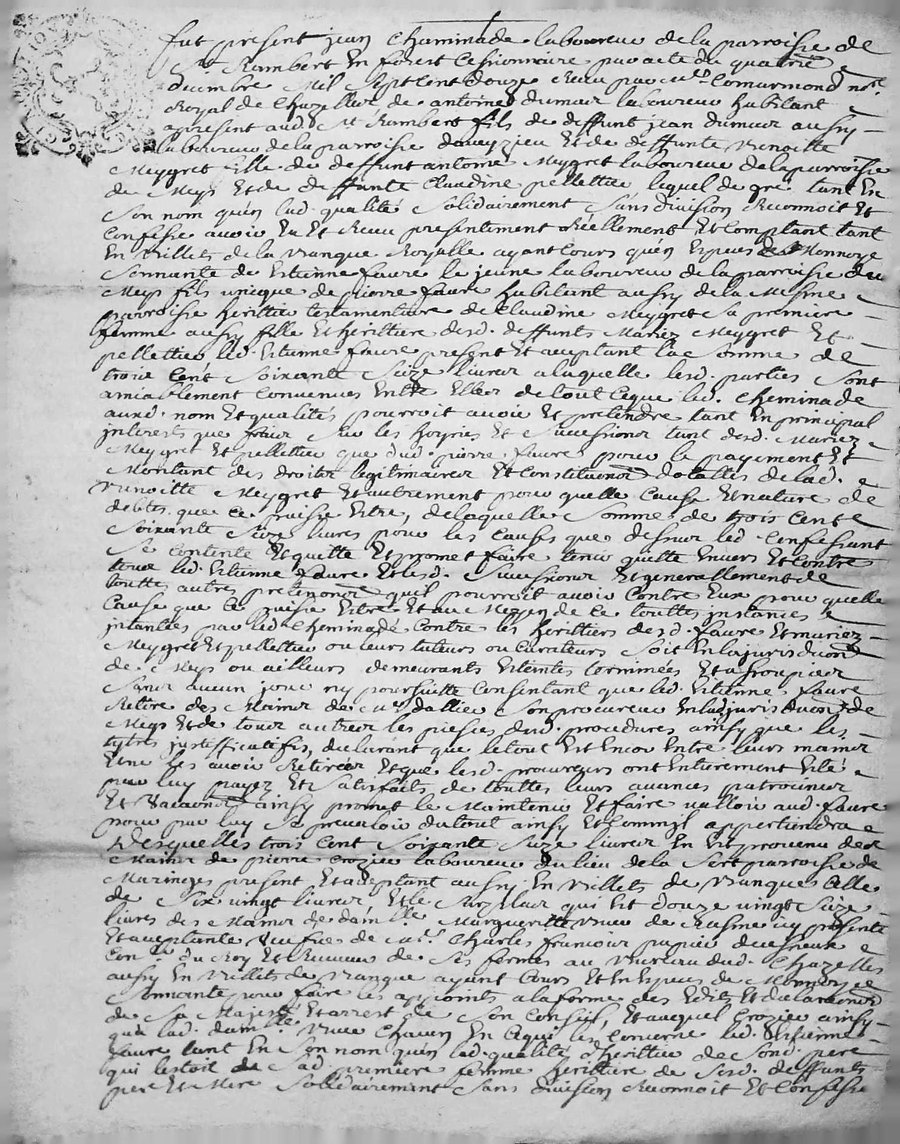 fut present jean Chaminade laboureur de la parroisse de
St Rambert En forest Cessionnaire par acte du quatrie
decembre Mil Sept Cent Douze Receu par me Comarmond nore
Royal de Chazelles de antoine dumas laboureur habitant
appresent aud. St Rambert fils de deffunt jean dumas aussy
laboureur de la parroisse et de deffunte Benoitte
Meygret fille de deffunt antoine Meygret laboureur de la parroisse
de Meys Et de deffunte Claudine pelletier lequel de gré tant En
Son nom qu'en lad. qualité Solidairement Sans division Reconnoit Et
Confesse avoir Eu Et Receu presentement Réellement Et Comptant tant
En Billets de la Banque Royalle ayant Cours qu'en Especes de Monnoye
Sonnante de Estienne faure le jeune laboureur de la parroisse de
Meys fils unique de pierre faure habitant aussy de la Mesme
parroisse herittier testamentaire de Claudine Meygret Sa premiere
femme aussy fille Et herittiere desd. deffunts Mariez Meygret Et
pelletier led. Estienne faure present Et acceptant la Somme de
trois Cent Soixante Seize livres a laquelle lesd. parties Sont
amiablement Convenues Entre Elles de tout Ceque led. Cheminade
auxd. nom Et qualités pourroit avoir Et pretendre tant En principal
interests que frais Sur les hoyries Et Successions tant desd. Mariez
Meygret Et pelletier que dud. pierre faure pour le payement Et
Montant des droits legitimaires Et Constitutions dotalles de lad.
Benoitte Meygret Et autrement pour quelle Cause Et nature de
debtes que Ce puisse Estre, de laquelle Somme de trois Cent
Soixante Seize livres pour les Causes que dessus led. Confessant
Se Contente Et quitte Et promet faire tenir quitte Envers Et Contre
tous led. Estienne faure Et lesd. Successions Et generallement de
touttes autres pretentions quil pourroit avoir Contre Eux pour quelle
Cause que Ce puisse Estre Et au Moyen de Ce touttes instances
intantées par led. Cheminade Contre les herittiers desd. faure Et mariez
Meygret Et pelletier ou leurs tuteurs ou Curateurs Soit En la jurisdiction
de Meys ou ailleurs demeurants Eteintes terminées Et assoupies
Sans aucun jour ny poursuitte Consentant que led. Estienne faure
Retire des Mains de me dallier Son procureur En lad. jurisdiction de
Meys Et de tous autres les pieses desd. procedures ainsy que les
tytres justifficatifs, declarant que le tout Est Encor Entre leurs mains
Et ne les avoir Retirées Et que lesd. procureurs ont Entierement Eté
par luy payez Et Satisfaits de touttes leurs avances patrocines
Et Vacations ainsy promet le Maintenir Et faire valloir aud. faure
pour par luy Se prevaloir du tout ainsy Et Comme il appertiendra
Desquelles trois Cent Soixante Seize livres En Est provenu des
Mains de pierre Crozier laboureur du lieu de la parroisse de
Maringes present Et acceptant aussy En Billets de Banque Celle
de Six vingt livres, Et le Surplus qui Est Douze vingt Seize
livres des Mains de damlle Margueritte icy presente
Et acceptante veufve de mre Charles francois papier
Conr du Roy Et Receveur de Ses fermes au Bureau dud. Chazelles
aussy En Billets de Banque ayant Cours Et En Especes de Monnoye
Sonnante pour faire les appoints a la forme des Edits Et declarations
de Sa Majesté Et arrest de Son Conseil, Et auquel Crozier ainsy
qu'a lad. damlle veuve Chacun En Ce qui les Concerne led. Estienne
faure tant En Son nom qu'en lad. qualité d'herittier de Sond. pere
qui l'estoit de Sad. premiere femme herittiere de Sesd. deffunts
pere Et Mere Solidairement Sans division Reconnoit Et Confesse